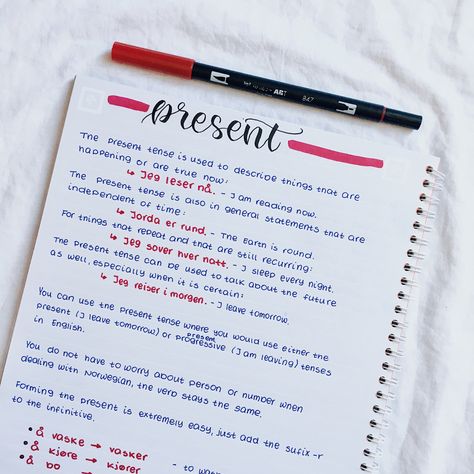 ART 847
present
The present tense is used to describe things that are
happening or are true now:
↳ Jeg leser nå. - I am reading now.
The present tense is also in general statements that are
independent of time:
↳ Jorda er rund. - The Earth is round.
For things that repeat and that are still recurring:
↳ Jeg sover hver natt. - I sleep every night.
The present tense can be used to talk about the future
as well, especially when it is certain:
↳ Jeg reiser i morgen. - I leave tomorrow.
You can use the present tense where you would use either the
present (I leave tomorrow) or present progressive (I am leaving) tenses
in English.
You do not have to worry about person or number when
dealing with Norwegian, the verb stays the same.
Forming the present is extremely easy, just add the sufix -r
to the infinitive.
• å vaske → vasker
• å kjøre → kjører
• å bo →